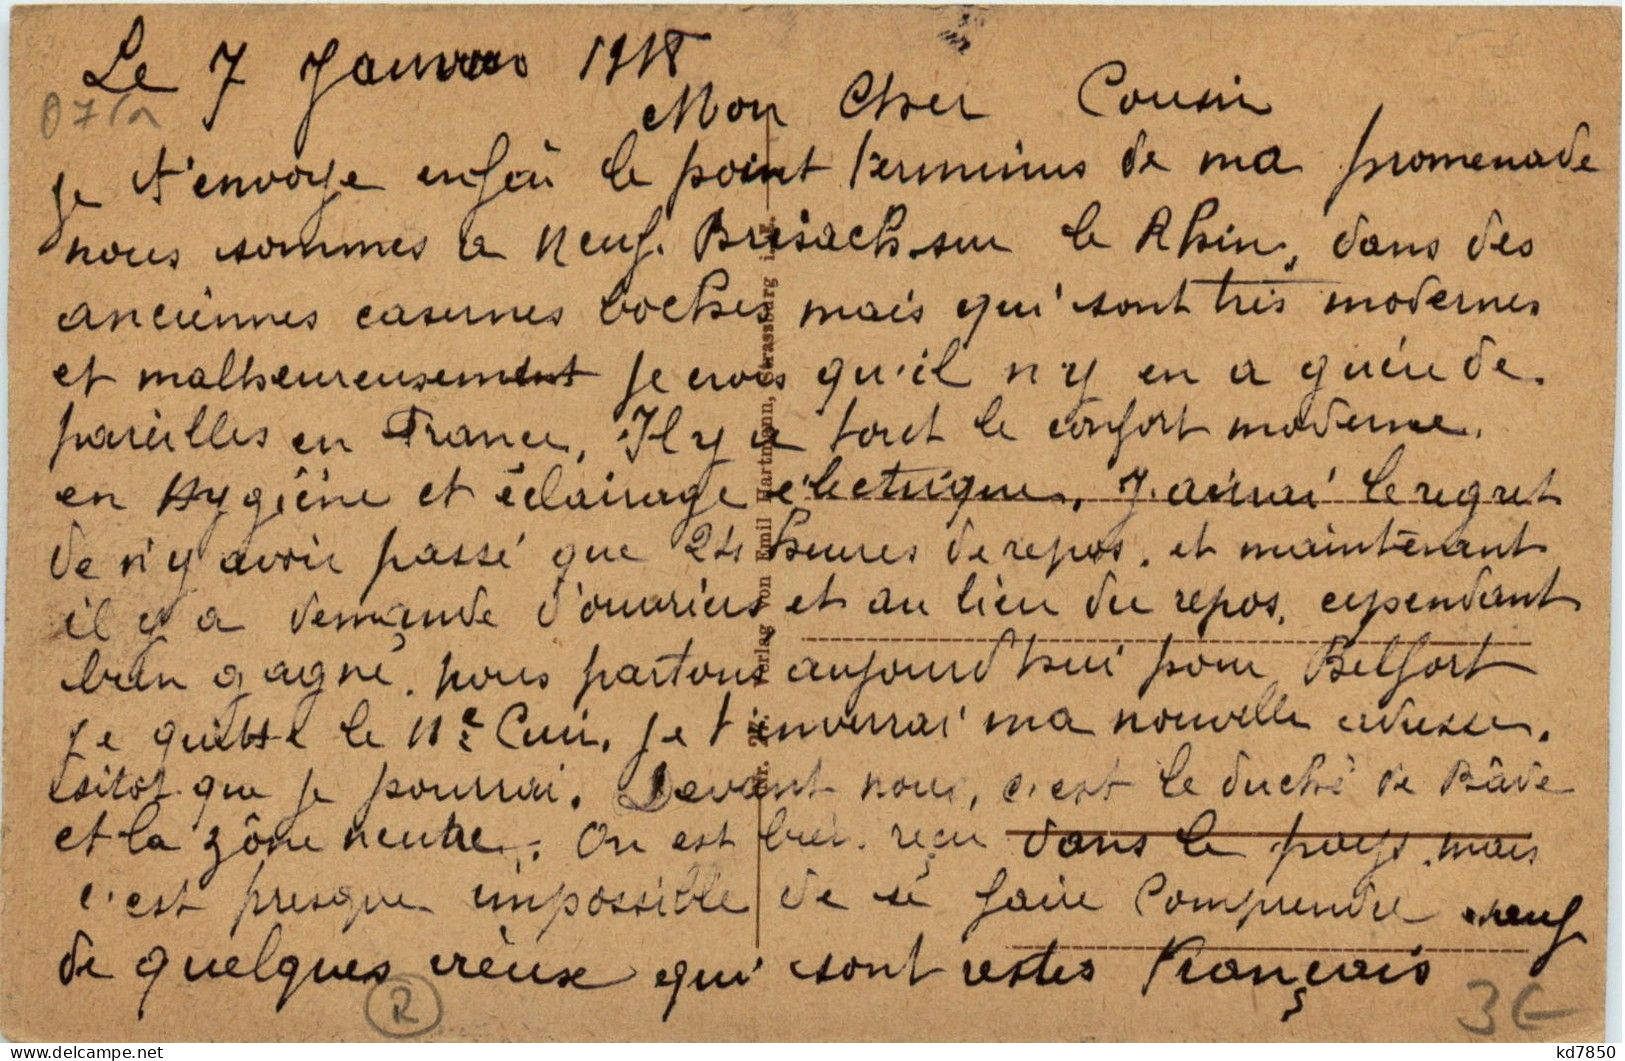 Le 7 Janvier 1918
Mon Cher Cousin
je t'envoye enfin le point terminus de ma promenade
nous sommes a neuf. Brisach sur le Rhin, dans des
anciennes casernes boches mais qui sont très modernes
et malheureusement je crois qu'il n'y en a guère de.
pareilles en France, Il y a tout le confort moderne.
en Hygiène et éclairage électrique, J'aurai le regret
de n'y avoir passé que 24 heures de repos. et maintenant
il y a demande d'ouvriers et au lieu du repos, cependant
bien gagné, nous partons aujourd'hui pour Belfort
je quitte le 11e Cuir. je t'enverrai ma nouvelle adresse.
sitot que je pourrai. Devant nous, c'est le duché de Bâde
et la zône neutre. On est bien reçu dans le pays, mais
c'est presque impossible de se faire comprendre neuf
de quelques vieux qui sont restés Français
Nr. 27. Verlag von Emil Hartmann, Strassburg i. E.
R
3€
kd7850